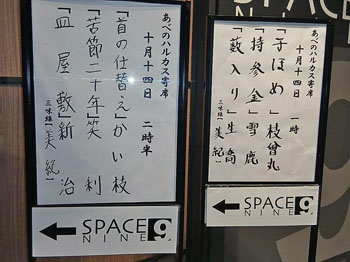 あべのハルカス寄席
十月十四日 一時
「子ほめ」枝曾丸
「持参金」雪鹿
「藪入り」生喬
三味線(美紀)
SPACE
NINE 9
あべのハルカス寄席
十月十四日 二時半
「首の仕替え」かい枝
「苦節二十年」笑利
「皿屋敷」新治
三味線(美紀)
SPACE
NINE 9